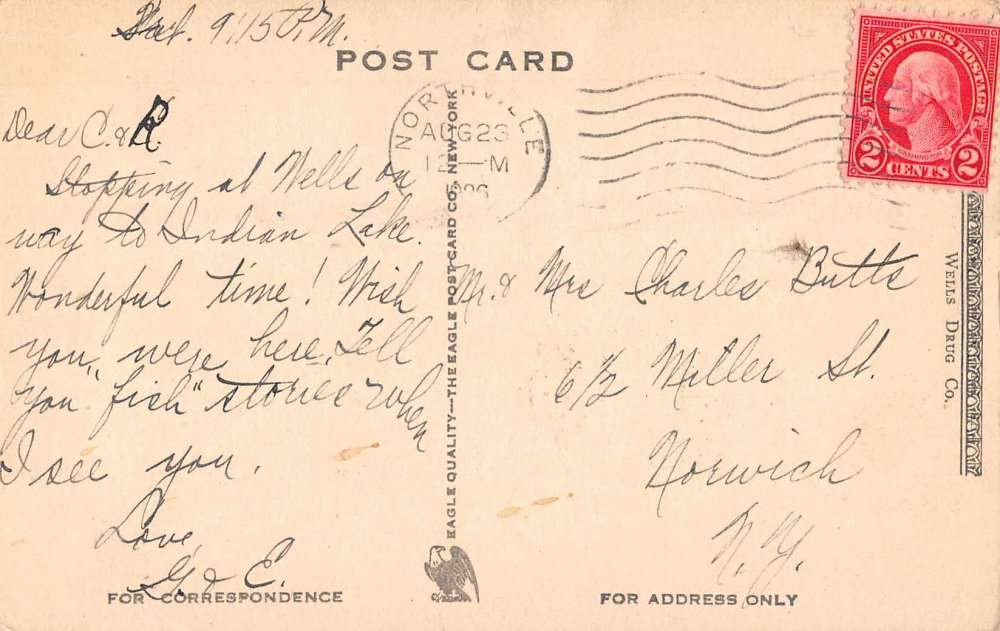 Sat. 9:15 P.M.
POST CARD
Dear C. & R.
Stopping at Wells on
way to Indian Lake.
Wonderful time! Wish
you were here. Tell
you "fish" stories when
I see you.
Love
G. & E.
FOR CORRESPONDENCE
EAGLE QUALITY—THE EAGLE POST CARD CO., NEW YORK
NORTHVILLE
AUG 23
12—M
UNITED STATES POSTAGE
WASHINGTON
2 CENTS 2
Mr. & Mrs Charles Butts
6½ Mitler St.
Norwich
N.Y.
WELLS DRUG CO.
FOR ADDRESS ONLY